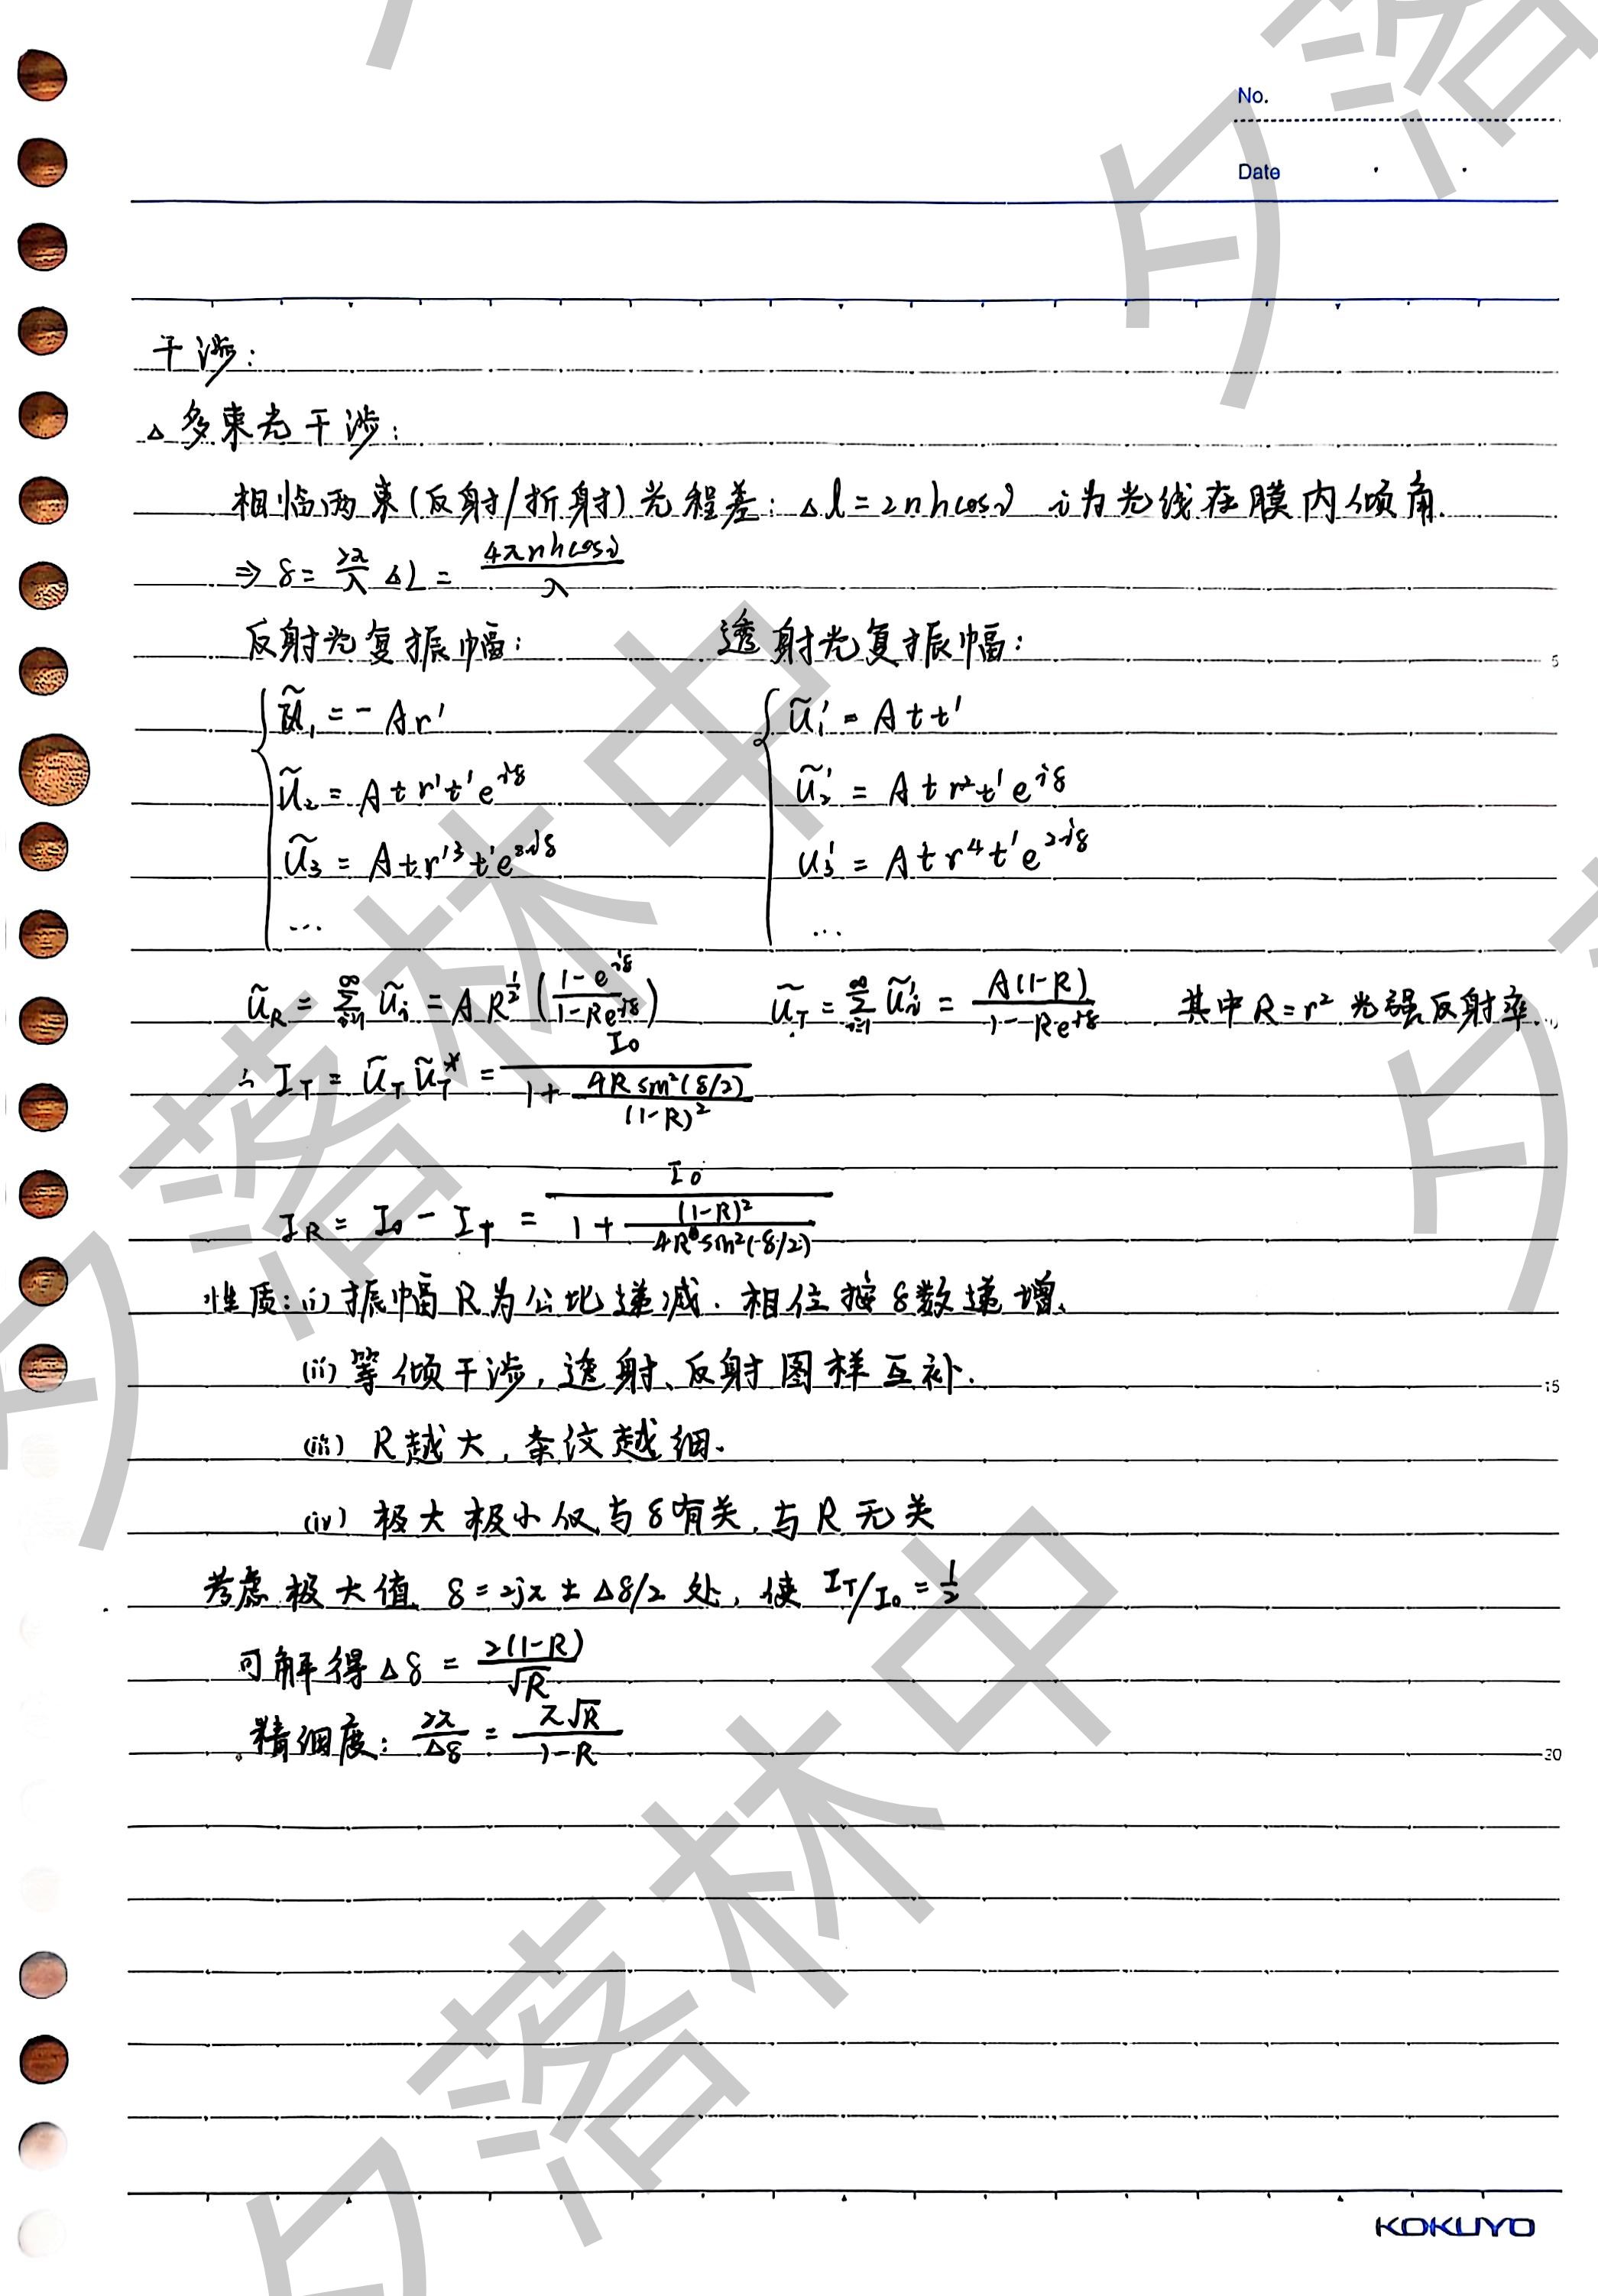 No.
Date
干涉:
△多束光干涉:
相临两束(反射/折射)光程差: Δl = 2nhcosi i为光线在膜内倾角.
⇒ δ = 2π/λ ΔL = 4πnhcosi/λ
反射光复振幅: 透射光复振幅:
Ũ₁ = -Ar' Ũ₁' = Att'
Ũ₂ = Atr't'e^{iδ} Ũ₂' = Atr²t'e^{iδ}
Ũ₃ = Atr'³t'e^{2iδ} U₃' = Atr⁴t'e^{2iδ}
... ...
Ũ_R = Σ_{i=1}^{∞} Ũ_i = AR^{1/2}((1-e^{iδ})/(1-Re^{iδ})) Ũ_T = Σ_{i=1}^{∞} Ũ_i' = A(1-R)/(1-Re^{iδ}) 其中R=r² 光强反射率.
∴ I_T = Ũ_T Ũ_T* = I₀/(1+4Rsin²(δ/2)/(1-R)²)
I_R = I₀ - I_T = I₀/(1+(1-R)²/(4Rsin²(δ/2)))
性质: (i) 振幅R为公比递减. 相位按δ数递增.
(ii) 等倾干涉, 透射、反射图样互补.
(iii) R越大, 条纹越细.
(iv) 极大极小仅与δ有关, 与R无关
考虑极大值 δ=2jπ ± Δδ/2 处, 使 I_T/I₀ = 1/2
可解得 Δδ = 2(1-R)/√R
精细度: 2π/Δδ = π√R/(1-R)
5
15
20
KOKUYO
夕落林中
夕落林中
夕落
夕